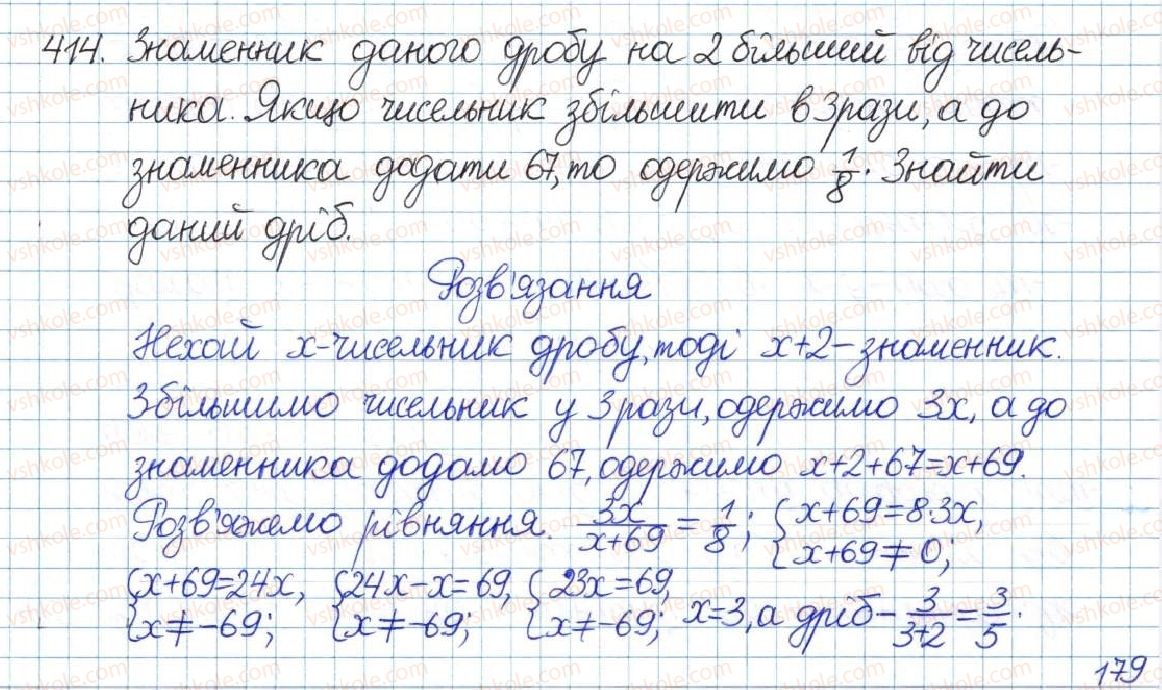 414. Знаменник даного дробу на 2 більший від чисель-
ника. Якщо чисельник збільшити в 3 рази, а до
знаменника додати 67, то одержимо 1/8. Знайти
даний дріб.
Розв'язання
Нехай x - чисельник дробу, тоді x+2 – знаменник.
Збільшимо чисельник у 3 рази, одержимо 3x, а до
знаменника додамо 67, одержимо x+2+67=x+69.
Розв'яжемо рівняння. 3x/(x+69) = 1/8; {x+69=8·3x, x+69≠0;
{x+69=24x, x≠-69; {24x-x=69, x≠-69; {23x=69, x≠-69; x=3, а дріб – 3/(3+2) = 3/5.
179
vshkole.com